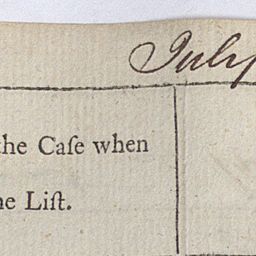 July
the Caſe when
he Liſt.